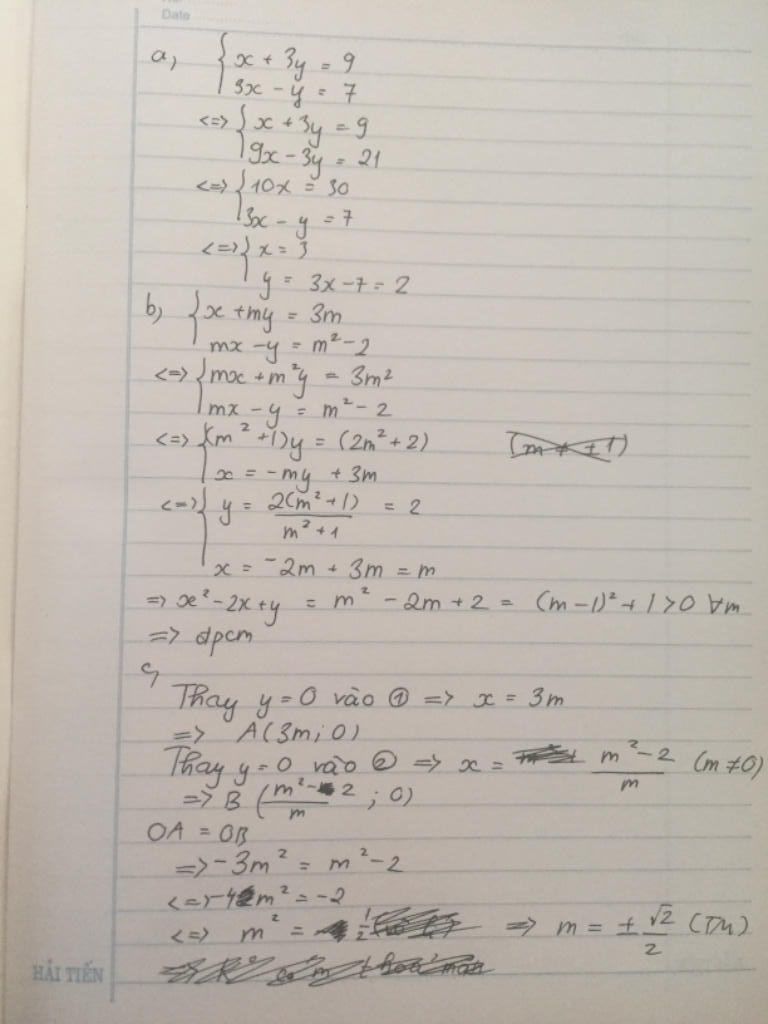 Date
a, { x + 3y = 9
3x - y = 7
<=> { x + 3y = 9
9x - 3y = 21
<=> { 10x = 30
3x - y = 7
<=> { x = 3
y = 3x - 7 = 2
b, { x + my = 3m
mx - y = m² - 2
<=> { mx + m²y = 3m²
mx - y = m² - 2
<=> { (m² + 1)y = (2m² + 2) (m ≠ ± 1)
x = -my + 3m
<=> { y = 2(m² + 1) / m² + 1 = 2
x = -2m + 3m = m
=> x² - 2x + y = m² - 2m + 2 = (m - 1)² + 1 > 0 ∀m
=> dpcm
c,
Thay y = 0 vào ① => x = 3m
=> A(3m; 0)
Thay y = 0 vào ② => x = m² - 2 / m (m ≠ 0)
=> B (m² - 2 / m ; 0)
OA = OB
=> -3m² = m² - 2
<=> -4m² = -2
<=> m² = 1/2 => m = ± √2 / 2 (TM)
HẢI TIẾN